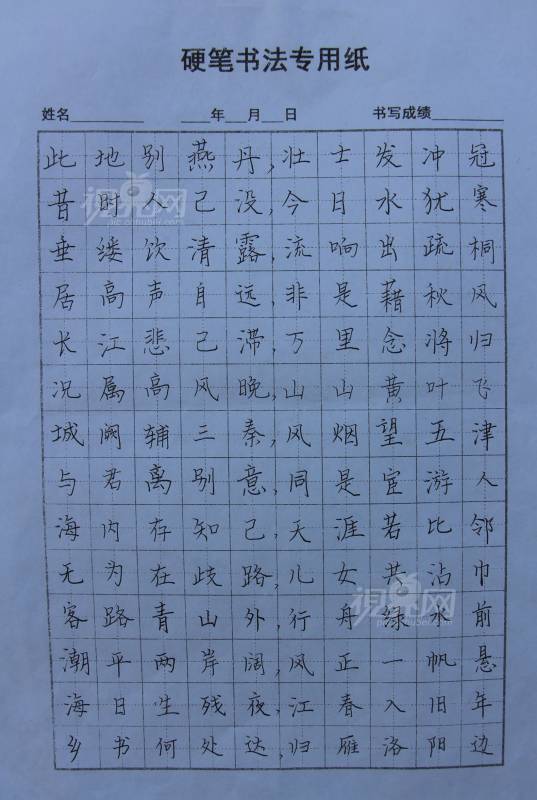 硬笔书法专用纸
姓名 年 月 日 书写成绩
此地别燕丹,壮士发冲冠
昔时人已没,今日水犹寒
垂緌饮清露,流响出疏桐
居高声自远,非是藉秋风
长江悲已滞,万里念将归
况属高风晚,山山黄叶飞
城阙辅三秦,风烟望五津
与君离别意,同是宦游人
海内存知己,天涯若比邻
无为在歧路,儿女共沾巾
客路青山外,行舟绿水前
潮平两岸阔,风正一帆悬
海日生残夜,江春入旧年
乡书何处达,归雁洛阳边